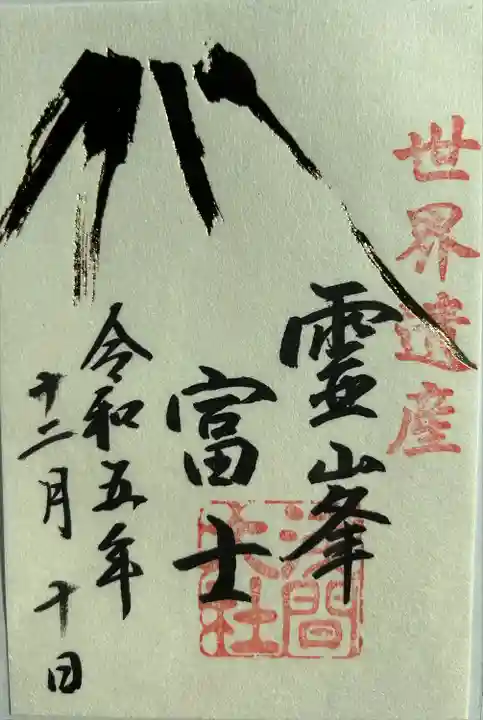 世界遺産
霊峯
富士
浅間
大社
令和五年
十二月十日